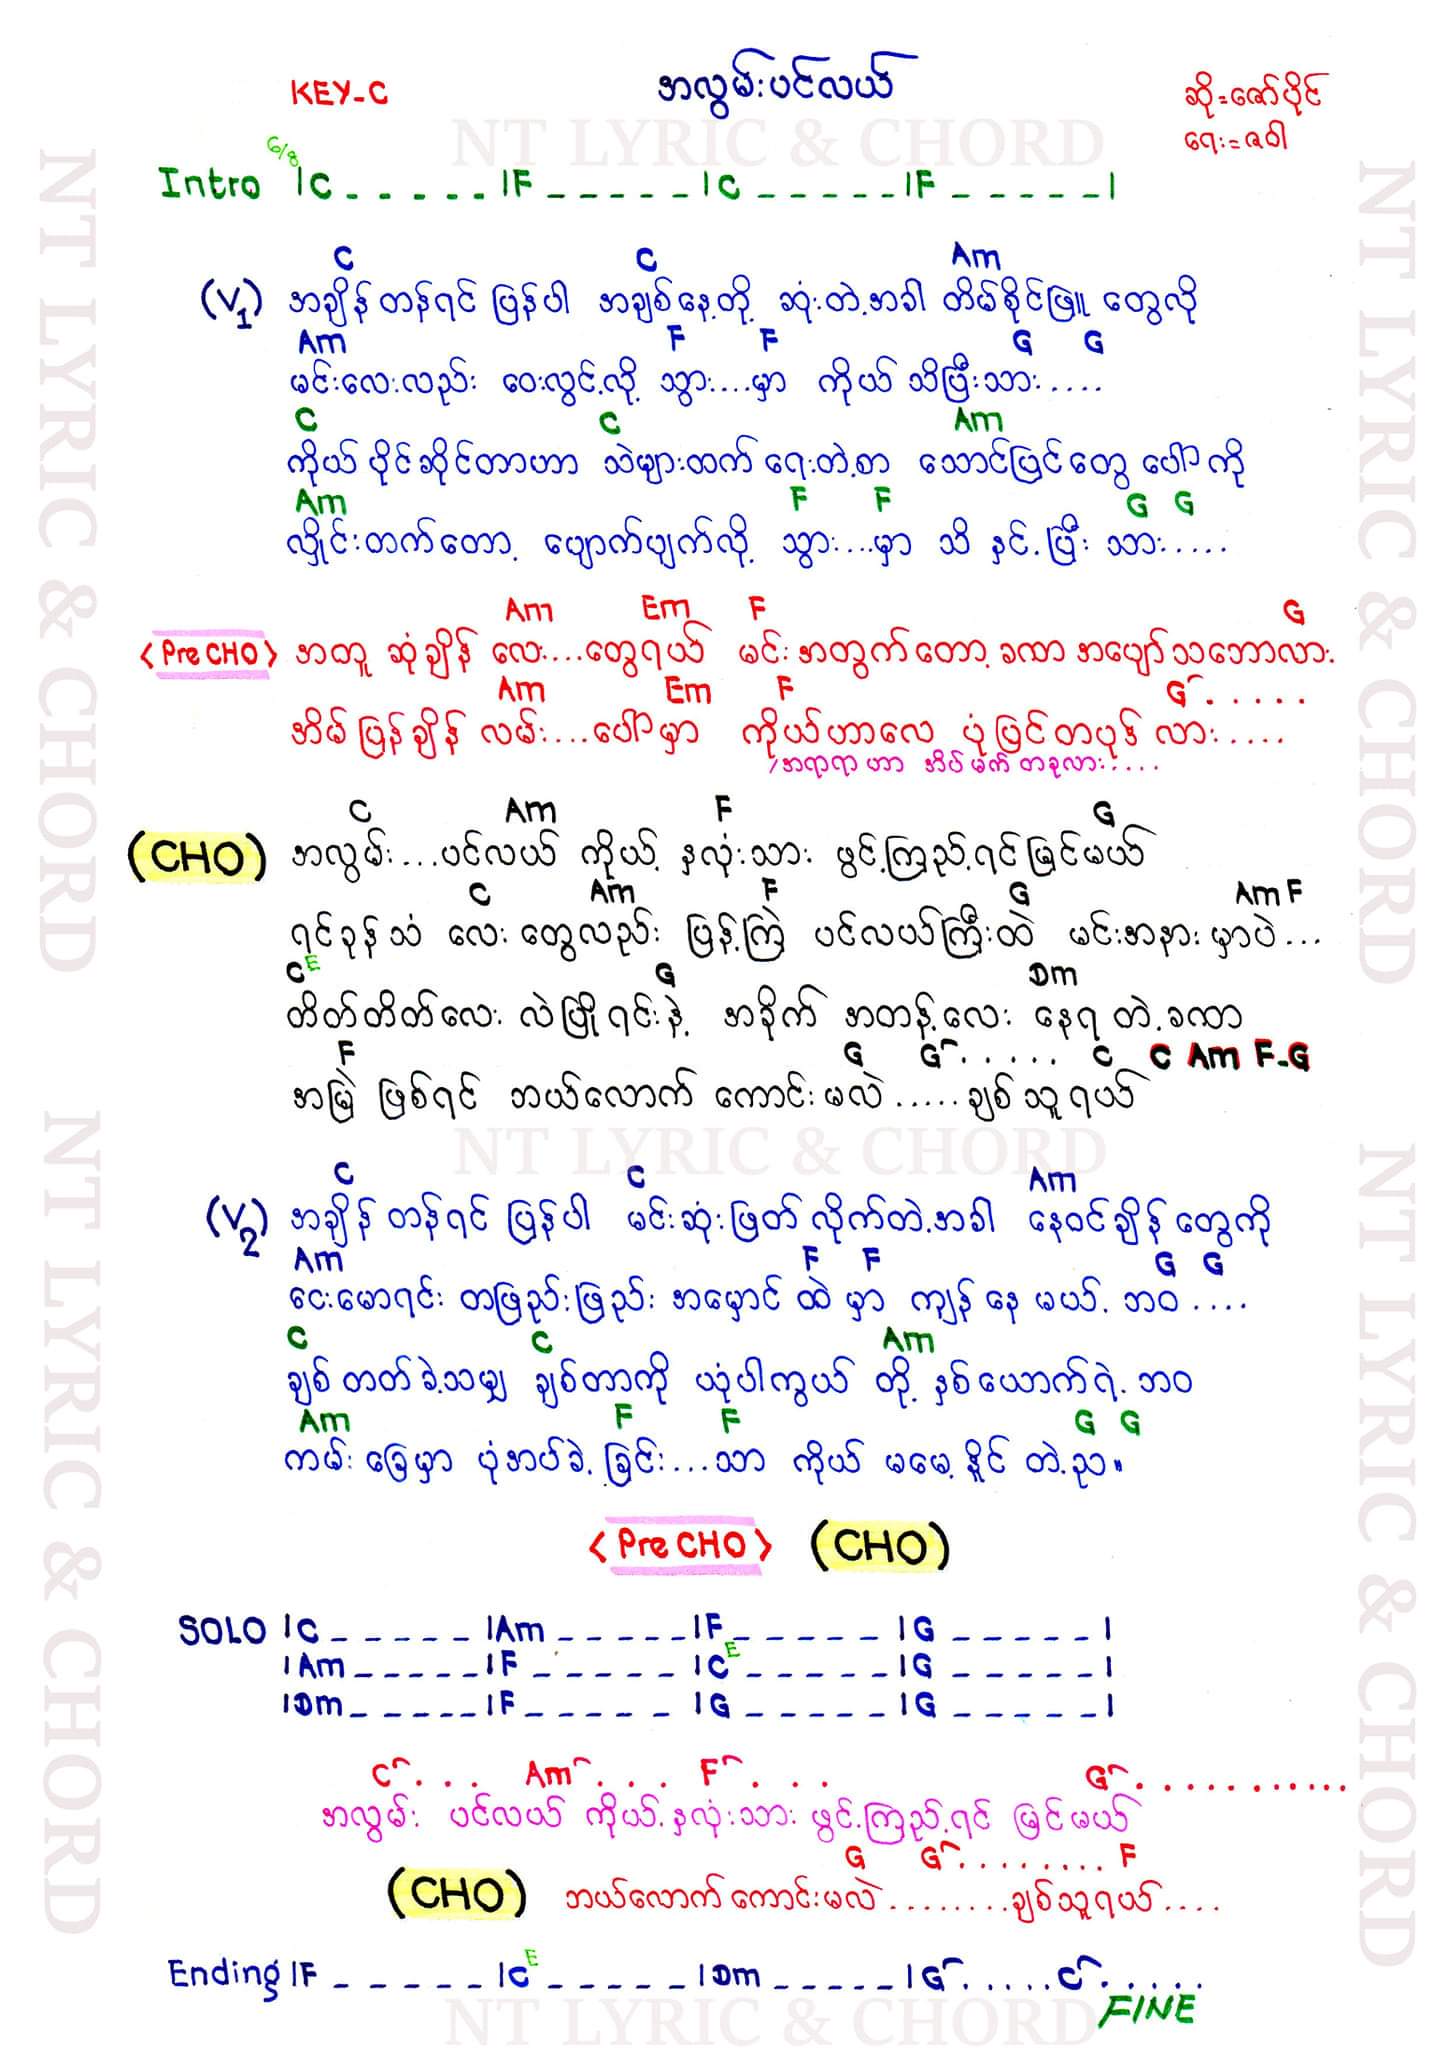 KEY-C
အလွမ်းပင်လယ်
ဆို=ဇော်ပိုင်
ရေး=ဇဝါ
NT LYRIC & CHORD
6/8
Intro |C _ _ _ _ _ |F _ _ _ _ _ |C _ _ _ _ _ |F _ _ _ _ _ |
C C Am
(V1) အချိန်တန်ရင် ပြန်ပါ အချစ်နေ့တို့ ဆုံးတဲ့အခါ တိမ်စိုင်ဖြူ တွေလို
Am F F G G
မင်းလေးလည်း ဝေးလွင့်လို့ သွား...မှာ ကိုယ် သိပြီးသား....
C C Am
ကိုယ် ပိုင်ဆိုင်တာဟာ သဲများထက် ရေးတဲ့စာ သောင်ပြင်တွေ ပေါ်ကို
Am F F G G
လှိုင်းတက်တော့ ပျောက်ပျက်လို့ သွား...မှာ သိ နှင့် ပြီး သား.....
Am Em F G
<Pre CHO> အတူ ဆုံချိန် လေး...တွေရယ် မင်း အတွက်တော့ ခဏ အပျော်သဘောလား
Am Em F G.....
အိမ်ပြန်ချိန် လမ်း...ပေါ်မှာ ကိုယ်ဟာလေ ပုံပြင်တပုဒ် လား....
/အရာရာ ဟာ အိပ်မက် တခုလား....
C Am F G
(CHO) အလွမ်း...ပင်လယ် ကိုယ့် နှလုံးသား ဖွင့်ကြည့်ရင် မြင်မယ်
C Am F G Am F
ရင်ခုန်သံ လေး တွေလည်း ပြန့်ကြဲ ပင်လယ်ကြီးထဲ မင်းအနား မှာပဲ...
C E G Dm
တိတ်တိတ်လေး လဲပြိုရင်းနဲ့ အခိုက် အတန့်လေး နေရ တဲ့ခဏ
F G G..... C C Am F-G
အမြဲ ဖြစ်ရင် ဘယ်လောက် ကောင်းမလဲ.....ချစ်သူရယ်
NT LYRIC & CHORD
C C Am
(V2) အချိန် တန်ရင် ပြန်ပါ မင်းဆုံးဖြတ် လိုက်တဲ့အခါ နေဝင်ချိန် တွေကို
Am F F G G
ငေးမောရင်း တဖြည်းဖြည်း အမှောင် ထဲ မှာ ကျန် နေ မယ့် ဘဝ....
C C Am
ချစ် တတ်ခဲ့သမျှ ချစ်တာကို ယုံပါကွယ် တို့ နှစ်ယောက်ရဲ့ ဘဝ
Am F F G G
ကမ်း ခြေမှာ ပုံအပ်ခဲ့ ခြင်း...သာ ကိုယ် မမေ့ နိုင် တဲ့ည။
<Pre CHO> (CHO)
SOLO |C _ _ _ _ _ |Am _ _ _ _ _ |F _ _ _ _ _ |G _ _ _ _ _ |
|Am _ _ _ _ _ |F _ _ _ _ _ |C E _ _ _ _ _ |G _ _ _ _ _ |
|Dm _ _ _ _ _ |F _ _ _ _ _ |G _ _ _ _ _ |G _ _ _ _ _ |
C... Am... F... G............
အလွမ်း ပင်လယ် ကိုယ့်နှလုံးသား ဖွင့်ကြည့်ရင် မြင်မယ်
G G......... F
(CHO) ဘယ်လောက် ကောင်းမလဲ........ချစ်သူရယ်....
Ending |F _ _ _ _ _ |C E _ _ _ _ _ |Dm _ _ _ _ _ |G..... C.....
FINE
NT LYRIC & CHORD
NT LYRIC & CHORD
NT LYRIC & CHORD
NT LYRIC & CHORD
NT LYRIC & CHORD